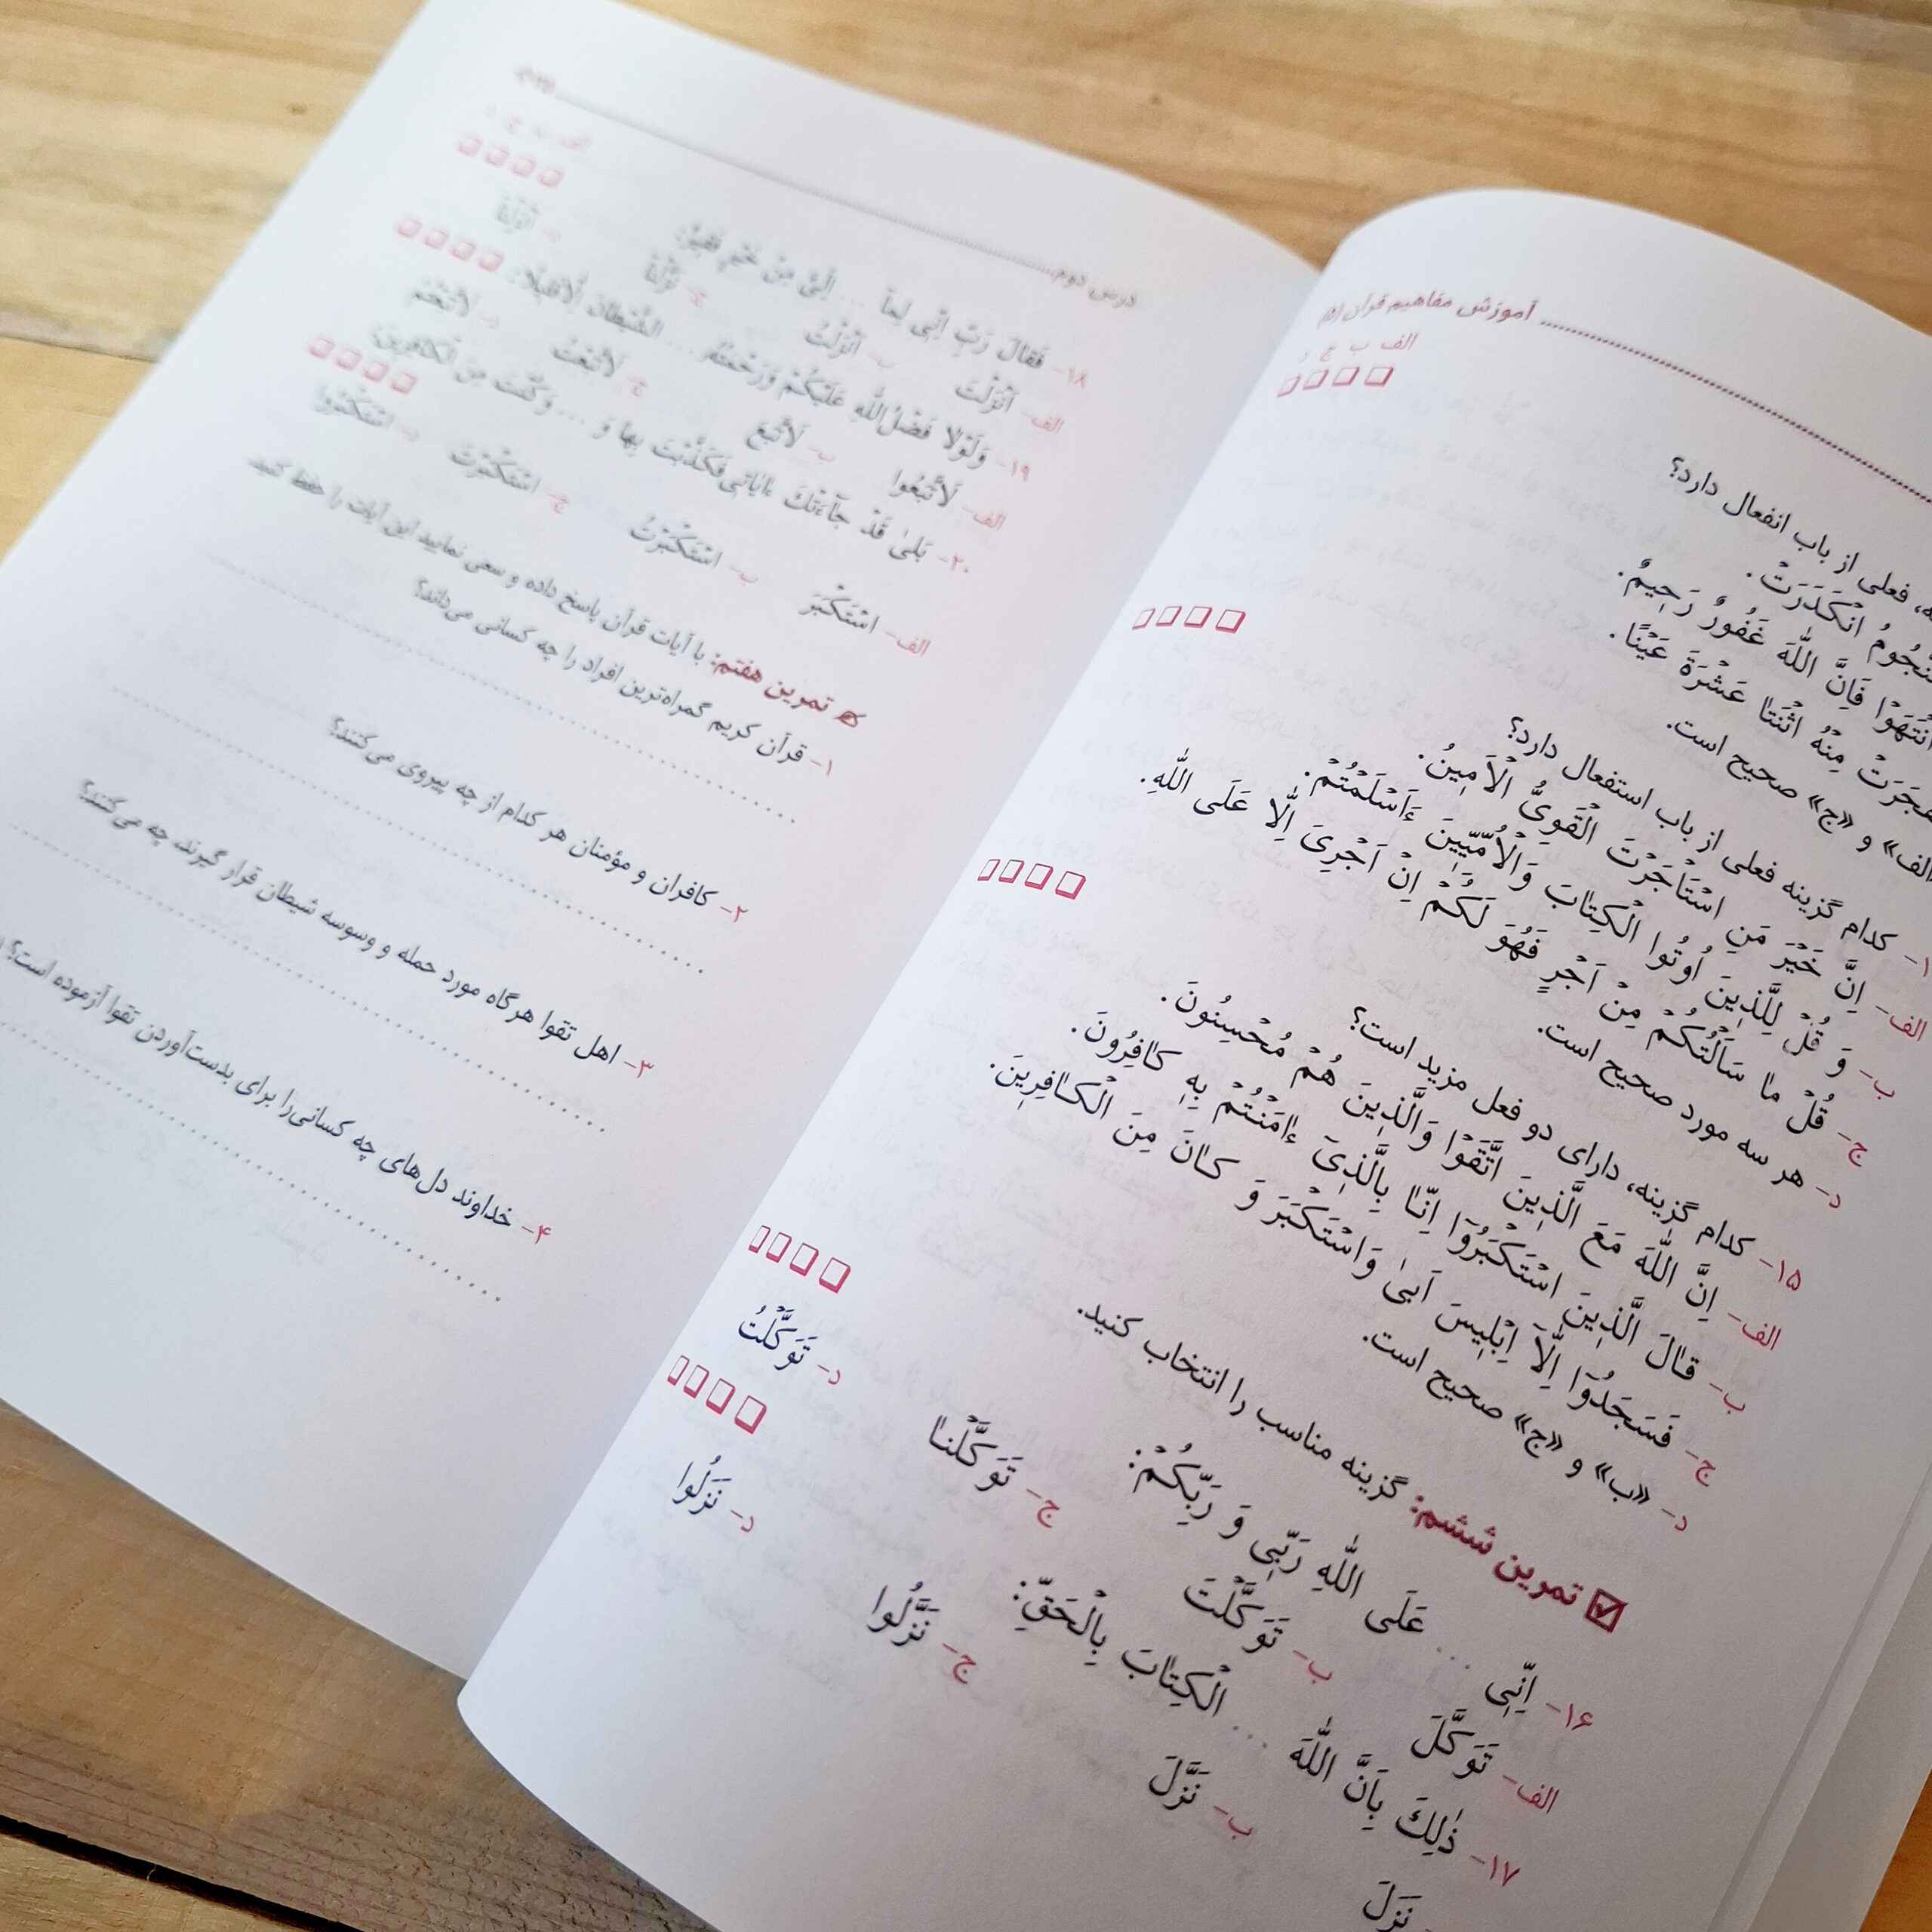 آموزش مفاهیم قرآن
الف ب ج د
فعلی از باب انفعال دارد؟
انْکَدَرَتْ.
انْتَهَوْا فَاِنَّ اللّٰهَ غَفُورٌ رَحِیمٌ.
مِنْهُ اثْنَتٰا عَشْرَةَ عَیْنًا.
الف» و «ج» صحیح است.
کدام گزینه فعلی از باب استفعال دارد؟
الف- اِنَّ خَیْرَ مَنِ اسْتَاْجَرْتَ الْقَوِیُّ الْاَمِینُ.
ب- وَ قُلْ لِلَّذِینَ اُوتُوا الْکِتٰابَ وَالْاُمِّیِّینَ ءَاَسْلَمْتُمْ.
ج- قُلْ مٰا سَاَلْتُکُمْ مِنْ اَجْرٍ فَهُوَ لَکُمْ اِنْ اَجْرِیَ اِلّٰا عَلَی اللّٰهِ.
د- هر سه مورد صحیح است.
۱۵- کدام گزینه، دارای دو فعل مزید است؟
الف- اِنَّ اللّٰهَ مَعَ الَّذِینَ اتَّقَوْا وَالَّذِینَ هُمْ مُحْسِنُونَ.
ب- قٰالَ الَّذِینَ اسْتَکْبَرُوٓا اِنّٰا بِالَّذِیٓ ءٰامَنْتُمْ بِهِ کٰافِرُونَ.
ج- فَسَجَدُوٓا اِلّٰآ اِبْلِیسَ اَبیٰ وَاسْتَکْبَرَ وَ کٰانَ مِنَ الْکٰافِرِینَ.
د- «ب» و «ج» صحیح است.
تمرین ششم: گزینه مناسب را انتخاب کنید.
۱۶- اِنِّی ... عَلَی اللّٰهِ رَبِّی وَ رَبِّکُمْ:
الف- تَوَکَّلَ ب- تَوَکَّلْتَ ج- تَوَکَّلْنٰا د- تَوَکَّلْتُ
۱۷- ذٰلِکَ بِاَنَّ اللّٰهَ ... الْکِتٰابَ بِالْحَقِّ:
نَزَلَ ب- نَزَّلَ ج- نَزَّلُوا د- نَزَلُوا
درس دوم
۱۸- فَقالَ رَبِّ اِنّی لِمآ ... اِلَیَّ مِنْ خَیْرٍ فَقیرٌ:
الف- اَنْزَلْتَ ب- اَنْزَلْتُ
۱۹- وَلَوْلا فَضْلُ اللّٰهِ عَلَیْکُمْ وَرَحْمَتُهُ ... الشَّیْطانَ اِلّا قَلیلًا:
الف- لَاتَّبَعُوا ب- لَاتَّبَعَ ج- لَاتَّبَعْتُ د- لَاتَّبَعْتُمُ
۲۰- بَلیٰ قَدْ جآءَتْکَ ءایاتی فَکَذَّبْتَ بِها وَ ... وَکُنْتَ مِنَ الْکافِرینَ:
الف- اسْتَکْبَرَ ب- اسْتَکْبَرْتُ ج- اسْتَکْبَرْتَ د- اسْتَکْبَرُوا
تمرین هفتم: با آیات قرآن پاسخ داده و سعی نمایید این آیات را حفظ کنید.
۱- قرآن کریم گمراه‌ترین افراد را چه کسانی می‌داند؟
۲- کافران و مؤمنان هر کدام از چه پیروی می‌کنند؟
۳- اهل تقوا هرگاه مورد حمله و وسوسه شیطان قرار گیرند چه می‌کنند؟
۴- خداوند دل‌های چه کسانی را برای بدست‌آوردن تقوا آزموده است؟